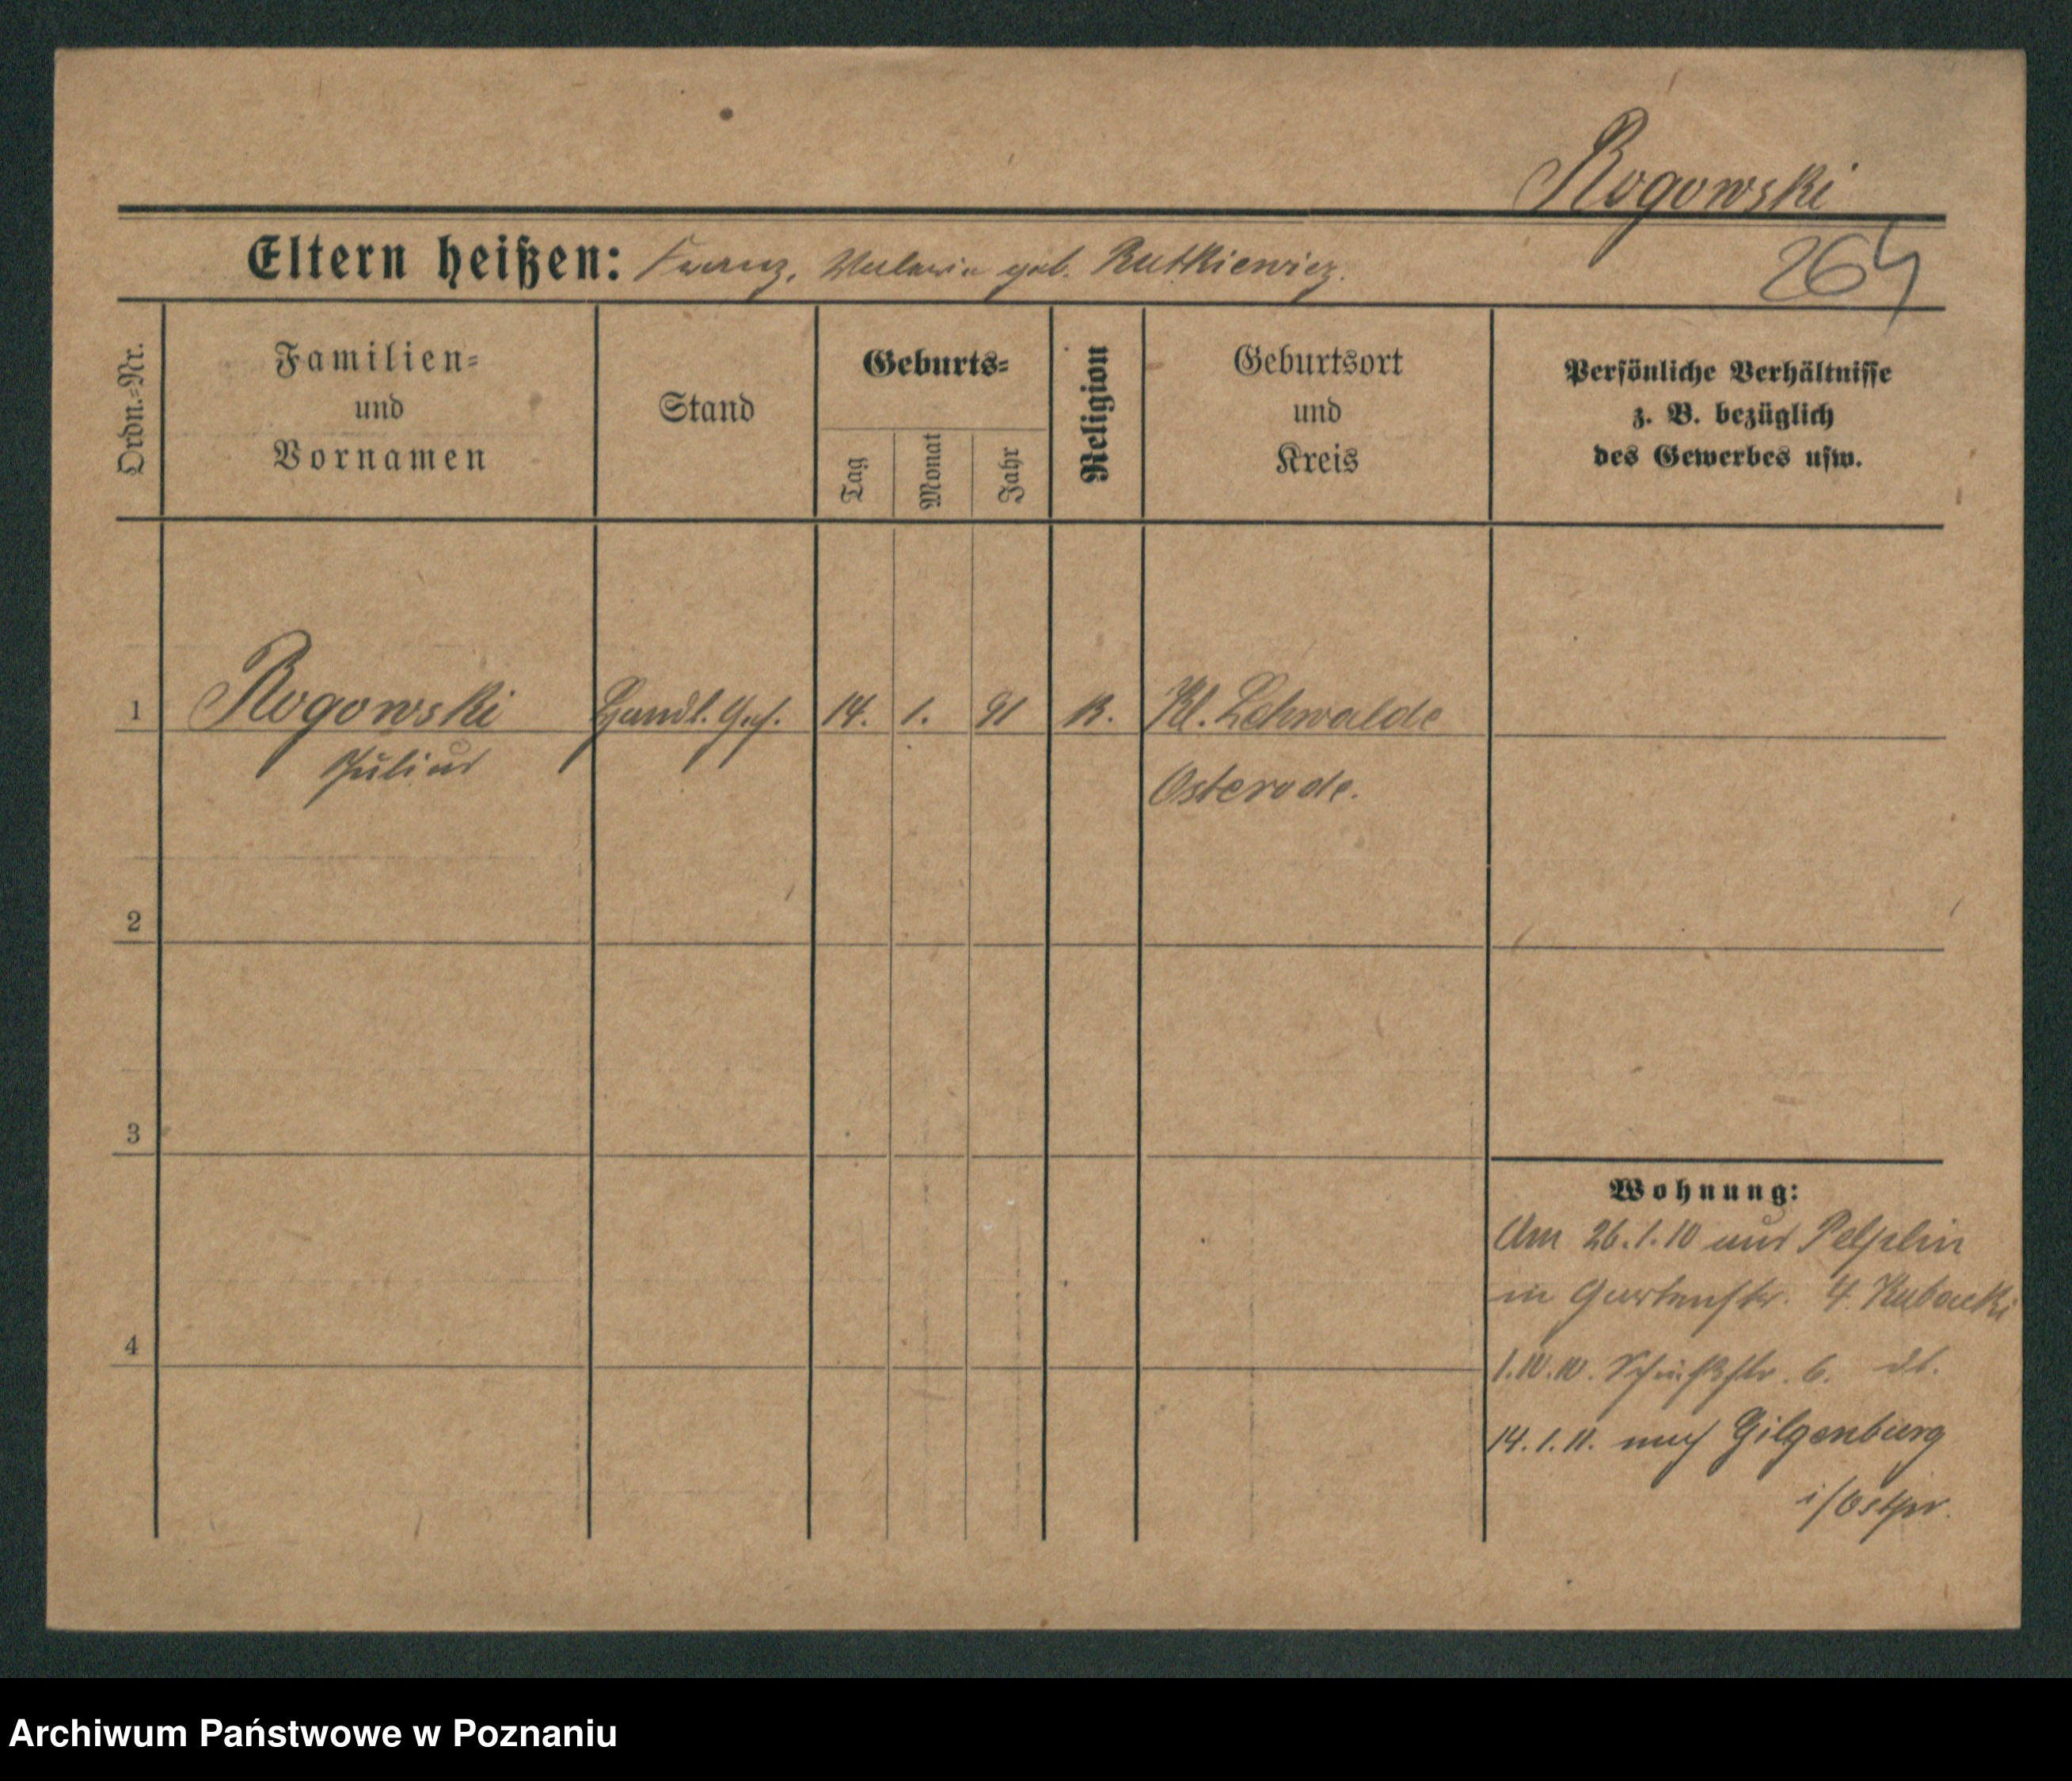 Rogowski
Eltern heißen: Franz, Valeria geb. Rutkiewicz.
264
Ordn.=Nr.
Familien=
und
Vornamen
Stand
Geburts=
Tag
Monat
Jahr
Religion
Geburtsort
und
Kreis
Persönliche Verhältnisse
z. B. bezüglich
des Gewerbes usw.
1 Rogowski Handl. Geh. 14. 1. 91 k. Kl. Lehwalde
Julius
Osterode.
2
3
4
Wohnung:
Am 26.1.10 aus Pelplin
in Gartenstr. 4. Kubacki
1.10.10. Schützstr. 6. dt.
14.1.11. nach Gilgenburg
i/Ostpr.
Archiwum Państwowe w Poznaniu